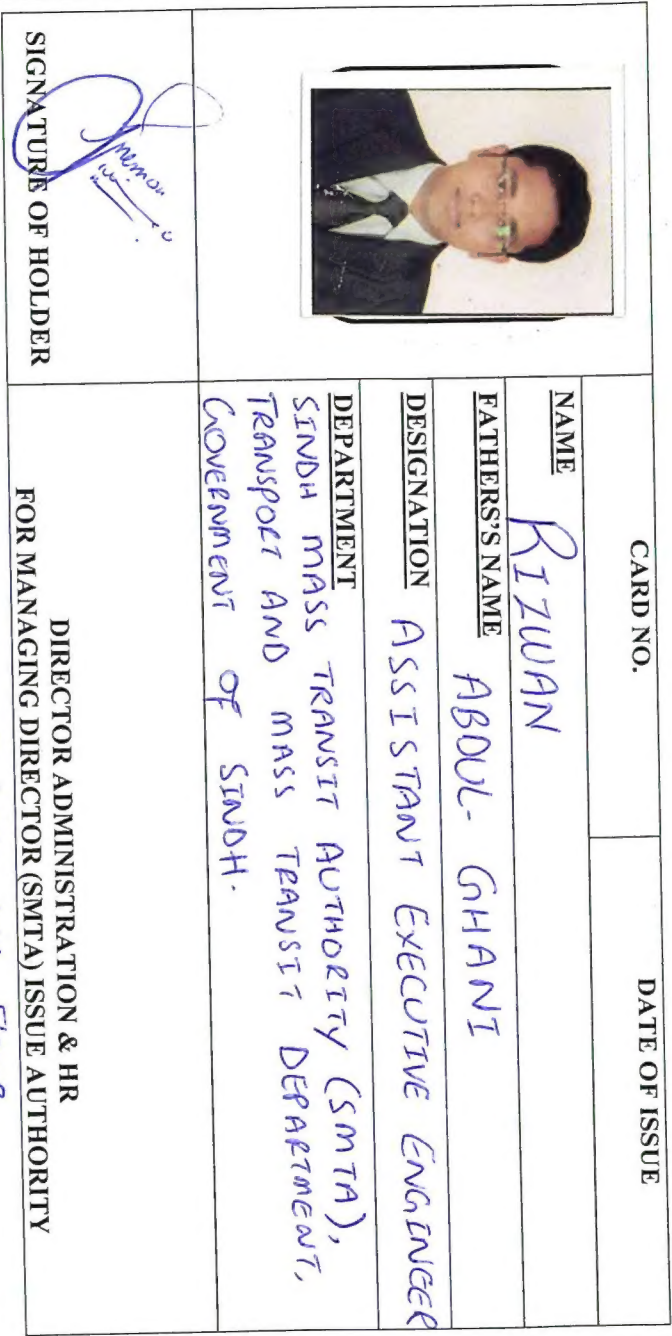 CARD NO. DATE OF ISSUE
NAME RIZWAN
FATHERS'S NAME ABDUL-GHANI
DESIGNATION ASSISTANT EXECUTIVE ENGINEER
DEPARTMENT
SINDH MASS TRANSIT AUTHORITY (SMTA),
TRANSPORT AND MASS TRANSIT DEPARTMENT,
GOVERNMENT OF SINDH.
SIGNATURE OF HOLDER
DIRECTOR ADMINISTRATION & HR
FOR MANAGING DIRECTOR (SMTA) ISSUE AUTHORITY